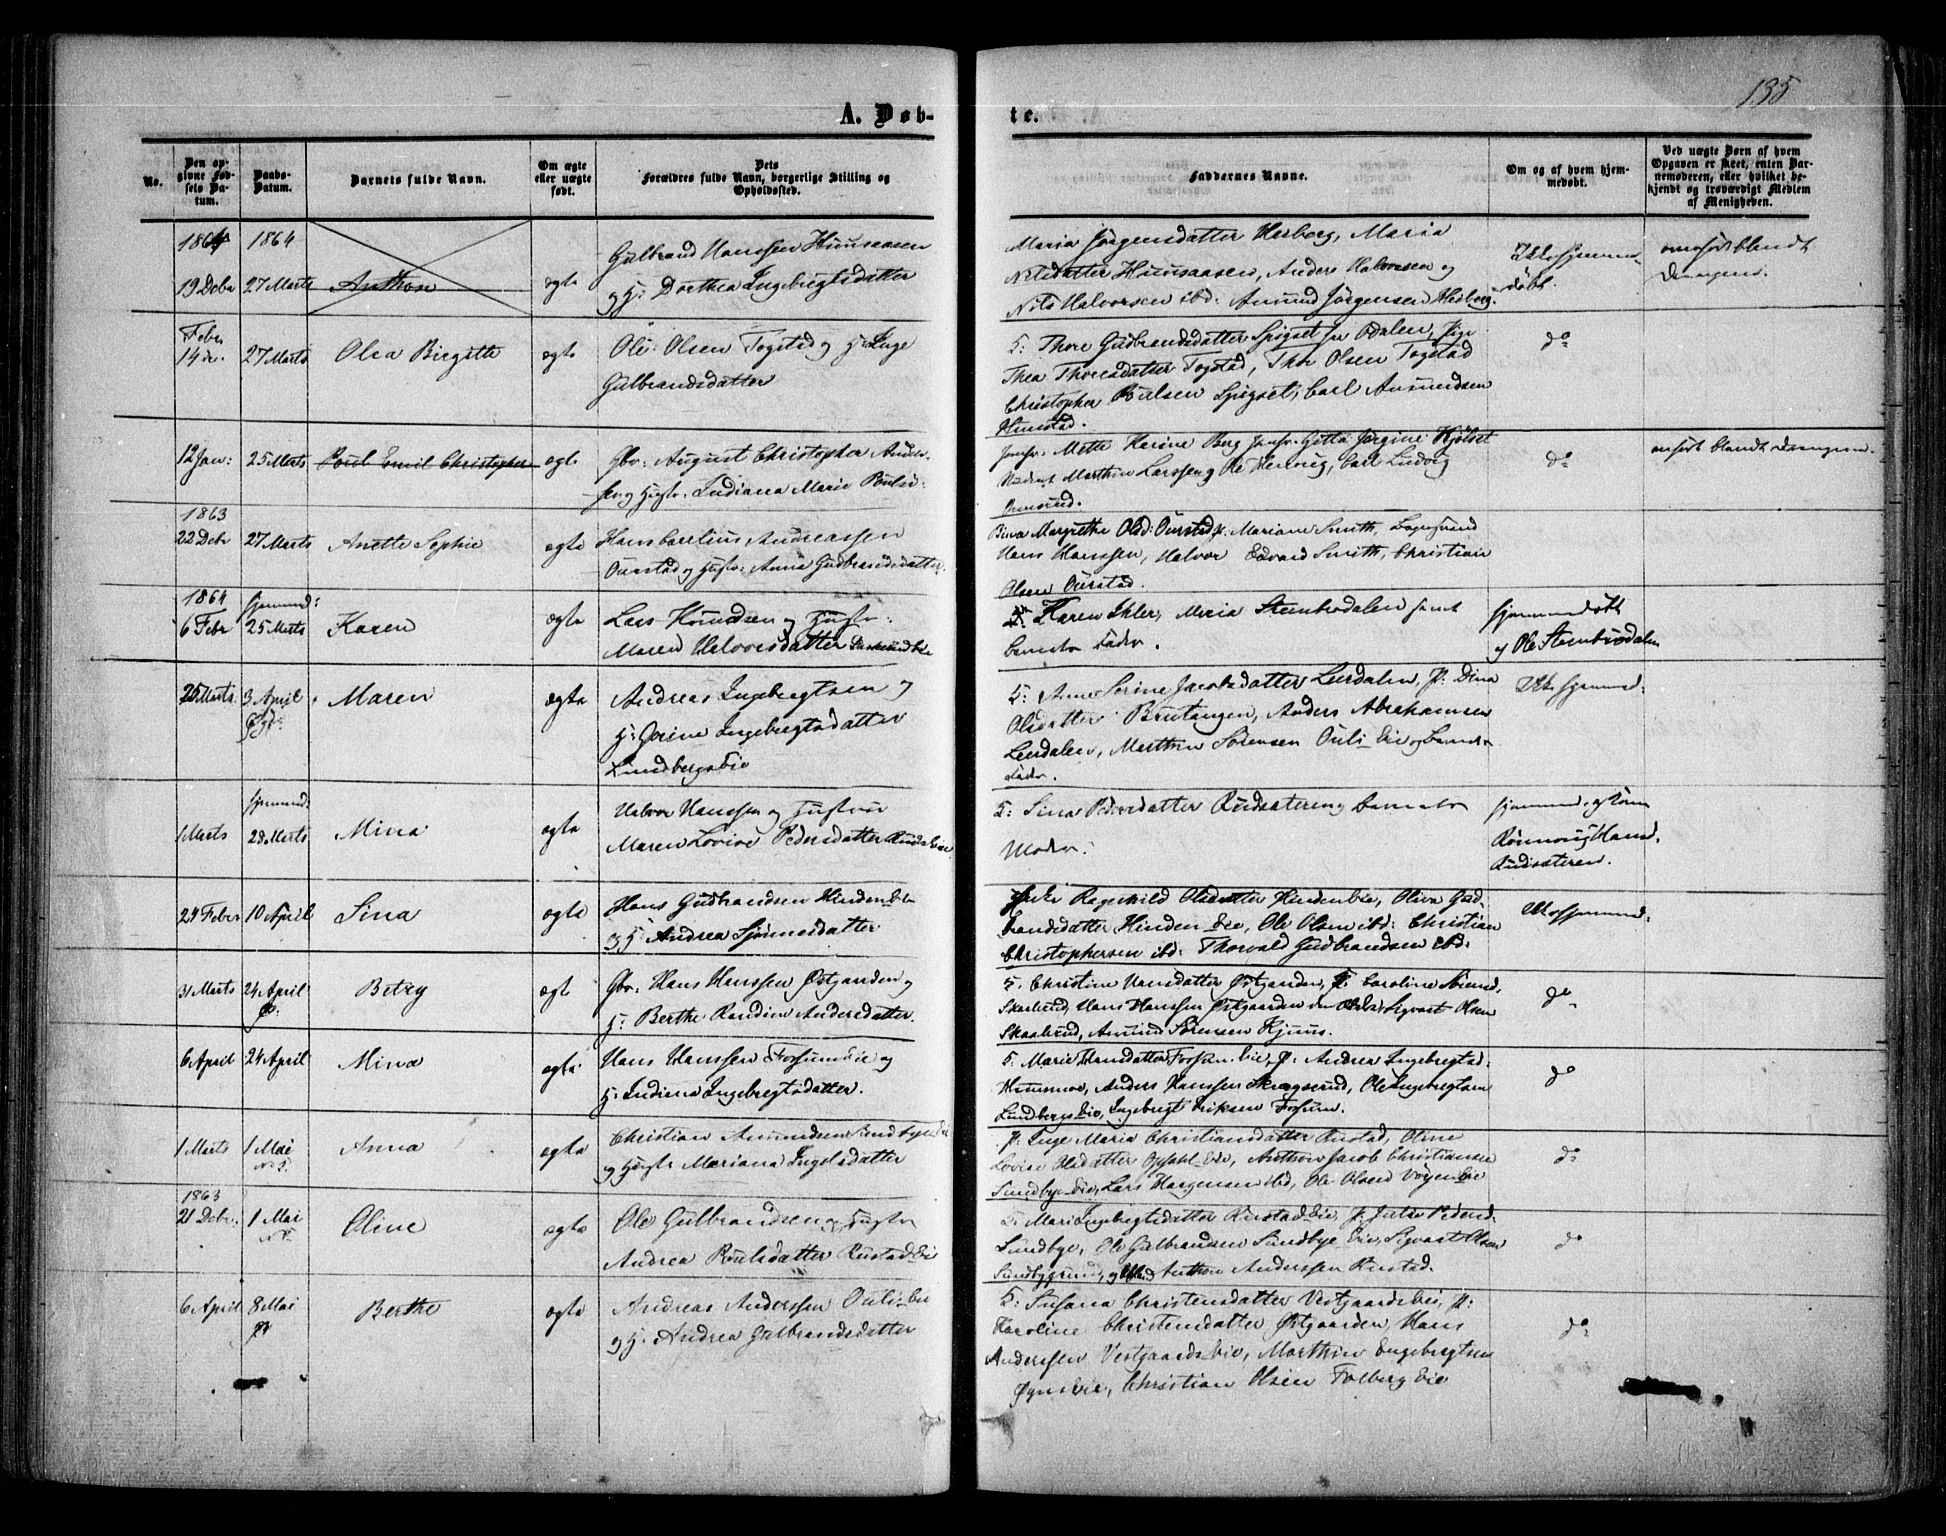 135
A. Døb-
te.
No.
Den op-
givne Fød-
sels Da-
tum.
Daabs-
Datum.
Barnets fulde Navn.
Om ægte
eller uægte
født.
Dets
Forældres fulde Navn, borgerlige Stilling og
Opholdssted.
Faddernes Navne.
Om og af hvem hjem-
medøbt.
Ved uægte Børn af hvem
Opgaven er skeet, enten Bar-
nemoderen, eller hvilket be-
kjendt og troværdigt Medlem
af Menigheden.
1864 1864
19 Debr 27 Marts Anthon ægte
Gulbrand Hanssen
og H: Dorthea Ingebrigtsdatter
Maria Jørgensdatter Hesberg, Maria
Anders Halvorsen og
Nils Halvorsen ibd: Amund Jørgensen Hesberg.
Ikke hjemme-
døbt.
anført blandt
Drengene.
Febr
14 27 Marts Olea Birgitte ægte
Ole Olsen Togstad og H: Inge
Gulbrandsdatter
H: Thore Gudbrandsdatter Spigset fra Odalen, Pige
Thea Thoresdatter Togstad, Thor Olsen Togstad
Christopher Poulsen Spigset, Carl Amundsen
do
12 Jan: 25 Marts Poul Emil Christopher ægte
Gbr: August Christopher Ander-
sen og Hustr: Indiana Marie Pouls
Jomfr: Mette Herine Berg Jomfr. Gitta Jørgine Hjølset
Student Marthin Larssen og Carl Ludvig
do
anført blandt Drengene.
1863
22 Debr 27 Marts Anette Sophie ægte
Hans Carelius Andreassen
Ourstad og Hustr: Anna Gudbrandsdatter.
Margrethe Olsd: Ourstad P. Mariane Smith,
Hans Hanssen, Halvor Edvard Smith, Christian
Olsen Ourstad.
1864 hjemmed:
6 Febr 25 Marts Karen ægte
Lars Knudsen og Hustr:
Maren Halvorsdatter
Karen Ihler, Maria Stenbrodalen samt
Barnets Fader.
hjemmedøbt
af Ole Stenbrodalen
25 Marts 3 April Maren ægte
Andreas Ingebrigtsen og
H: Gorine Ingebrigtsdatter
Lundbergseie
H: Anne Sørine Jacobsdatter Lersdalen, P: Dina
Olsdatter Brutangen, Anders Abrahamsen
Lersdalen, Marthin Sørensen Ouli Eie og Barnets
Fader.
Ikke hjemmed:
hjemmed:
1 Marts 28 Marts Mina ægte
Halvor Hanssen og Hustru
Maren Lovise Pedersdatter Ruudseie
H: Sina Pedersdatter Rudsæteren og Barnets
Moder.
hjemmed. af Kone
Rønnoug Hansd.
Rudsæteren.
24 Febr 10 April Sina ægte
Hans Gudbrandsen Hinden Eie
og H: Andrea Simensdatter
Ragnhild Olsdatter Hinden Eie, Oliva Gud-
brandsdatter Hinden Eie, Ole Olsen ibd: Christian
Christophersen ibd: Thorvald Gudbrandsen ibd:
Ikke hjemmed:
31 Marts 24 April Betzy ægte
Gbr: Hans Hanssen Østgaarden og
H: Berthe Randine Andersdatter.
H. Christine Hansdatter Østgaarden, P. Caroline
Skaalerud, Hans Hanssen Østgaarden den Ældre, Sigvart Olsen
Skaalerud, Amund Sørensen Kjuus.
do
6 April 24 April Mina ægte
Hans Hanssen Fossum Eie og
H: Indiana Ingebrigtsdatter.
H. Marie Hansdatter Fossum Eie, P: Andrea Ingebrigtsd:
Anders Hanssen Skrægsrud, Ole Ingebrigtsen
Lundbergs Eie, Ingebrigt Eriksen Fossum.
do
1 Marts 1 Mai Anna ægte
Christian Amundsen Sundbye Eie
og Hustr Mariana Ingelsdatter
P: Inge Maria Christiansdatter Rustad, Oline
Lovise Olsdatter Opsahl Eie, Anthon Jacob Christiansen
Sundbye Eie, Lars ibd, Ole Olsen Vøyen Eie
do
1863
21 Debr: 1 Mai Oline ægte
Ole Gulbrandsen og Hustr
Andrea Poulsdatter Rustad Eie
H: Mari Ingebrigtsdatter Rustad Eie, P: Pedersd.
Sundbye, Ole Gulbrandsen Sundbye Eie, Sigvart Olsen
Anthon Anderssen Rustad.
do
6 April 8 Mai Berthe ægte
Andreas Anderssen Ouli Eie
og H: Andrea Gulbrandsdatter
H: Susana Christensdatter Vestgaardseie, P:
Karoline Christensdatter Østgaarden, Hans
Anderssen Vestgaards Eie, Marthin Engebrigtsen
Eie, Christian Olsen Folberg Eie
do